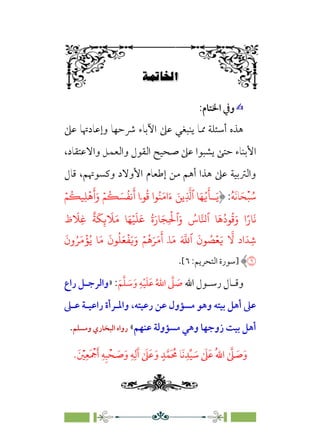 الخاتمة
وفي الختام:
هذه أسئلة مما ينبغي على الآباء شرحها وإعادتها على
الأبناء حتى يشبوا على صحيح القول والعمل والاعتقاد،
والتربية على هذا أهم من إطعام الأولاد وكسوتهم، قال
سُبْحَانَهُ: ﴿يَٰٓأَيُّهَا ٱلَّذِينَ ءَامَنُوا قُوٓا أَنفُسَكُمْ وَأَهْلِيكُمْ
نَارًا وَقُودُهَا ٱلنَّاسُ وَٱلْحِجَارَةُ عَلَيْهَا مَلَٰٓئِكَةٌ غِلَاظٌ
شِدَادٌ لَّا يَعْصُونَ ٱللَّهَ مَآ أَمَرَهُمْ وَيَفْعَلُونَ مَا يُؤْمَرُونَ
۝﴾ [سورة التحريم: ٦].
وقال رسول الله صَلَّى اللهُ عَلَيْهِ وَسَلَّمَ: «والرجل راع
على أهل بيته وهو مسؤول عن رعيته، والمرأة راعية على
أهل بيت زوجها وهي مسؤولة عنهم» رواه البخاري ومسلم.
وَصَلَّى اللهُ عَلَىٰ سَيِّدِنَا مُحَمَّدٍ وَعَلَىٰ آلِهِ وَصَحْبِهِ أَجْمَعِينَ.